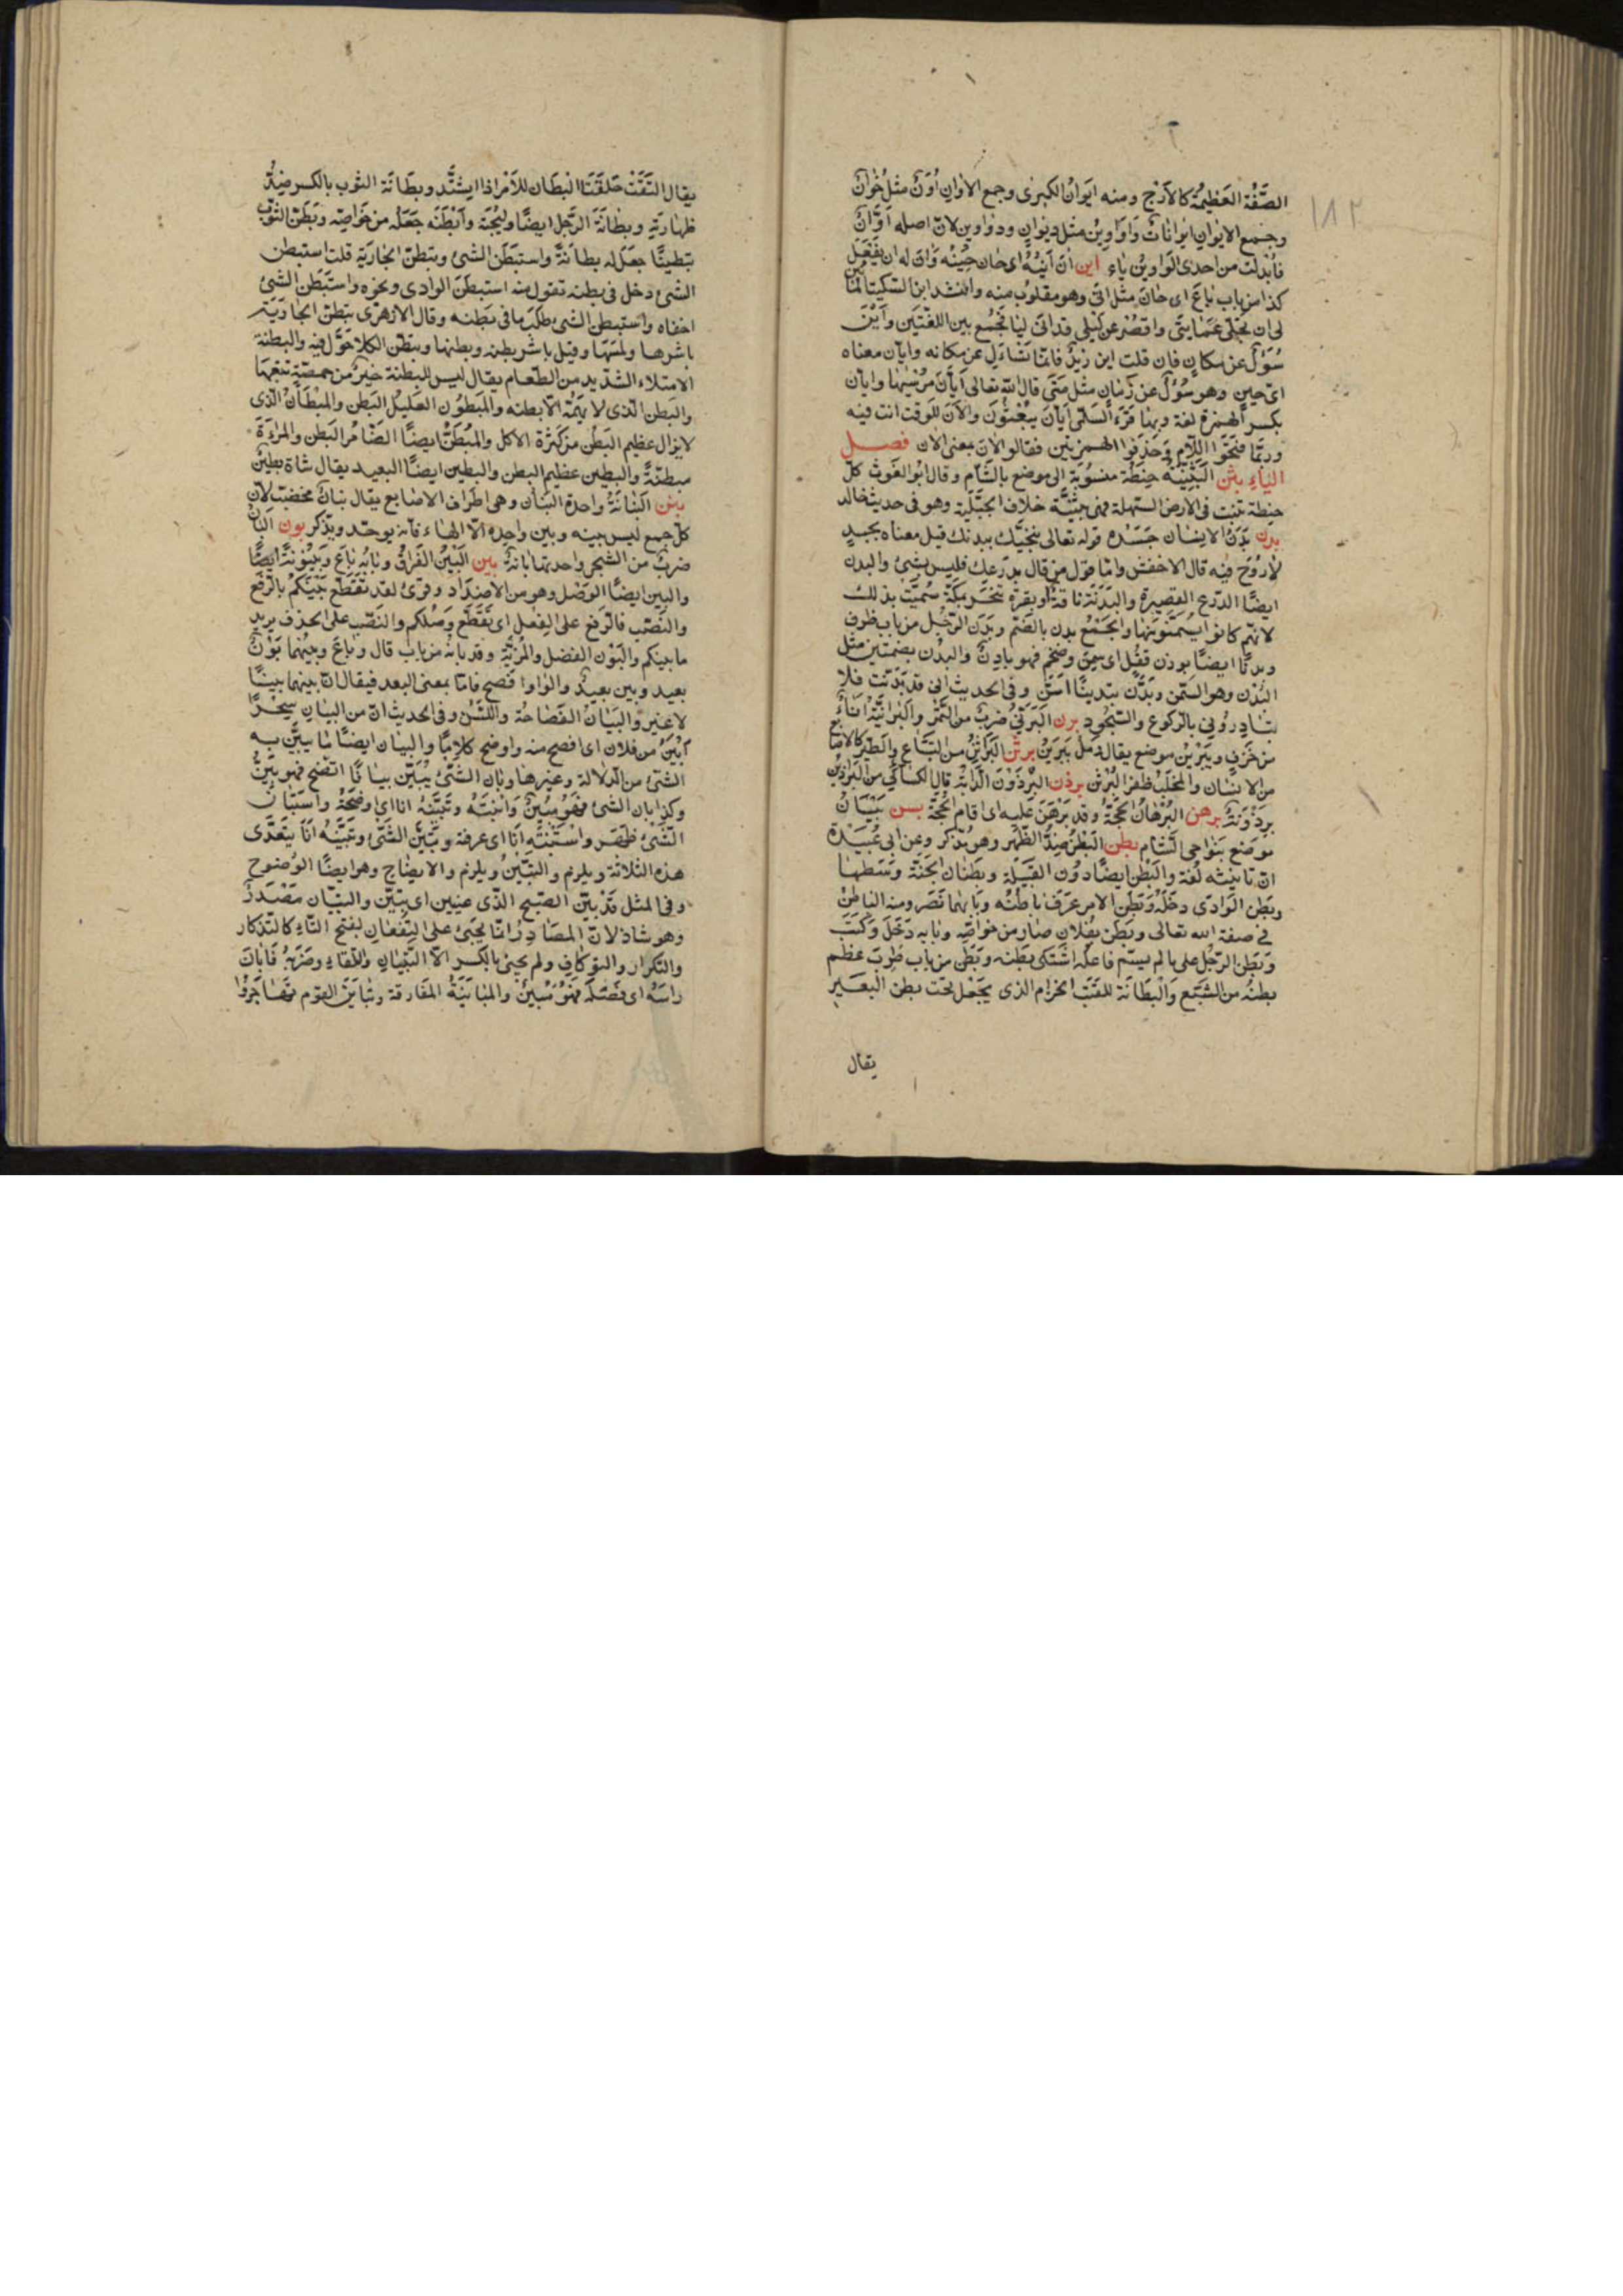 ١٨٢
الصُّفَّة العَظِيمَة كالأزَج ومنه ايَوانُ الكِسرى وجمع الاِوَانِ اُوْنٌ مثل خُوَانٌ
وجمع الايوانِ ايوانات وَاَوَاوِينُ مثل ديوانٍ ودَوَاوِين لانّ اصله اوَّانٌ
فابْدلت من احدى الوَاوينْ يَاء اين انَ اَيْنُهُ اى حَان حِينُه وَانَ له ان يَفْعَل
كذا من باب بَاعَ اى حَانَ مثل انَى وهو مقلوب منه وانشد ابن السّكّيت ألمّا يَئِن
لى ان تُجَلّى عَمَايتى واقصُرُ عن لَيْلى قد انَى ليَا فَجَمَع بين اللغتَين وأيْنَ
سُؤَالٌ عن مكانٍ فان قلت اين زيدٌ فانّما تسَاءَل عن مكانه وايّان معناه
اىّ حينٍ وهو سُؤالٌ عن زمَانٍ مثل مَتَى قال الله تعالى اَيّانَ مُرْسٰيهَا وايّان
بكسر الهمزة لغة وبها قرَءَ السّلمى ايّانَ يبْعَثُونَ والآن للوقت انت فيه
وربّما فتحَوا اللّامَ وَحَذفوا الهمزتين فقالو الانَ بمعنى الان فصل
البَاء بثن البَثَنِيَّة حِنطَة منسُوبَة الى موضع بالشّام وقال ابُو الغَوث كلّ
حِنطة تنبت فى الارض السّهلة فهى بَثنِيّة خلاف الجَبَليّة وهو فى حديث خالد
بدن بَدَنُ الانسَان جَسَدُه قوله تعالى ننجّيك ببدنك قيل معناه بجسدٍ
لا رُوحَ فيه قال الاخفش وامّا قول من قال بدرعك فليس بشئ والبدن
ايضًا الدّرع القصيرة والبَدَنَة ناقةٌ او بقرة تنحَر بمكّة سُمّيَتْ بذلك
لانّهم كانوا يُسَمّنونهَا والجَمْع بدن بالضّم وبَدَن الرّجُل من باب ظرف
وبدنًا ايضًا بوزن قفْل اى سَمِنَ وضخم فهو بادِنٌ والبدُن بضمّتين مثل
البُدْن وهو السّمَن وبَدَّن تبدينًا اسَنّ وفى الحديث انى قد بَدّنت فلا
تبَادِرُونى بالركوع والسّجُود برن البَرْنىّ ضَربٌ من التّمْر والبَرانِيّةُ انَاءٌ
من خَزَفٍ ويَبْرِيْن موضع يقال رَمْل يَبرينُ برثن البَرَاثِنُ من السّبَاع والطّيْر كالاصابع
من الانسَان والمخلَبُ ظفر البُرْثن برذن البِرْذَوْنَ الدّابّة قال الكسَائى من البَراذين
بِرْذَوْنَةٌ برهن البُرْهَانُ الحُجّةُ وقد بَرْهَنَ عَليه اى اقام الحُجّةَ بسن بَيْسَانُ
موضع بنَوَاحى الشّام بطن البَطنُ ضِدّ الظّهر وهو مذكر وعن ابى عُبَيْدة
انّ تانيثه لُغة والبَطنُ ايضًا دُونَ القَبيلَة وبُطْنَان الجَنّة وَسَطهَا
وبطن الوَادى دخَلَه وَبطنَ الامر عرَف باطنهُ وبَابهُما نَصَر ومنه البَاطنُ
فى صفة الله تعالى وبَطَن بفُلانٍ صَار من خوَاصّه وبَابه دَخَلَ وَكتَبَ
وَبُطِنَ الرّجُل على ما لم يسمّ فاعلُه اشتكى بَطنه وَبَطِن من باب طرِبَ عظم
بطنُه من الشبَع وَالبِطَانَة للقتَب الحزام الذى يُجْعَل تحت بطن البَعير
يقال
يقال التَقَتْ حَلقَتَا البِطَان للاَمْر اذا اشتَّد وبِطَانَة الثوب بالكسر ضِدّ
ظهَارَتِه وبطَانَةُ الرَّجُل ايضًا وليْجَته وَابْطَنه جَعَلُه من خوَاصّه وَبَطّن الثوب
تبطينًا جعَل له بطَانَةً واستبطَن الشئ وتبطنَ الجَارَيَة قلت استبطن
الشئ دخل فى بطنه تقول منه استبطنَ الوادى ونحوه واستَبطَن الشئ
اخفاه واستبطن الشئ طلَبَ ما فى بَطنه وقال الازهَرى تبَطنَ الجَارَيَة
باشرهَا ولمسَهَا وقيل باشر بطنه وبطنها وتبطّن الكلا جَوّل فيه والبطنة
الامتلاء الشّديد من الطّعَام يقال ليس للبطنة خيرٌ من خمصَة تتبَعهَا
والبَطِن الّذى لا يَهُمّه الّا بطنه والمَبطُون العَليْل البَطن والمِبْطَانُ الّذى
لا يزال عظيم البَطْن من كثرة الاكل والمُبَطّنُ ايضًا الضّامُر البَطن والمراءة
مبطنّةٌ والبطين عظيم البطن والبطين ايضًا البعيد يقال شَاة بطينٌ
بنن البَنَانَةُ واحدة البَنَان وهى اطرَاف الاصَابع يقال بنَانٌ مخضّب لانّ
كلّ جمع ليس بينه وبين واحِدِه الّا الهَاء فانّه يوحّد ويذكر بون البَانُ
ضربٌ من الشجَر واحدتها بَانةٌ بين البَيْنُ الفَرَاقُ وبَابُه بَاعَ وَبَيْنُوْنَةً ايضًا
والبين ايضًا الوَصْل وهو من الاضدَاد وقرئ لقد تقَطّع بَيْنَكُمْ بالرّفع
والنَصْب فالرّفع على الفِعْل اى تقطّع وَصْلكم والنَصْب على الحذف يريد
ما بينكم والبَوْن الفَضل والمَزيّة وقد بانه من باب قال وبَاعَ وبينهُما بَوْنٌ
بعيد وبين بعيدٌ والوَاوا فصح فامّا بمعنى البعد فيقال انّ بينهما بينًا
لا غير وَالبَيَانُ الفصَاحَة واللّسَنُ وفى الحديث انّ من البيَانِ سِحْرًا
اَبْيَنُ من فلان اى افصح منه واوضح كلامًا والبيَان ايضًا مَا يبيّن به
الشئ من الدّلالة وغيرها وبَان الشّئُ يُبَيّن بيَانًا اتّضح فهو بيّنٌ
وكذا بان الشئ فهو مُبيْنٌ وَابَنْتُه وتَبيّنُه انا اى اوضحتُه واستَبَانَ
الشّئ ظَهَر واستَبَنْتُه انَا اى عرفتُه وتبيّنَ الشئ وتبيّنُه انَا يتَعدّى
هذه الثّلاثة ويلزم والتبيّنُ ويلزم والايضَاح وهو ايضًا الوُضوح
وفى المثل قدْ بيّن الصّبح الّذى عينين اى تبيّن والتبيَان مَصْدَرٌ
وهو شاذ لانّ المصَادِرُ انّما تجيئ على التّفعَالِ بفتح التّاء كالتّذكار
والتّكرار والتوكَاف ولم يجئ بالكسر الّا التّبيَان والتّلقاء وضَرَبَهُ فَابَانَ
راسَهُ اى فصَلَه فهو مُبيْنٌ والمبَاينَةُ المفَارقة وتبَايَنَ القوم تهَاجَرُوا